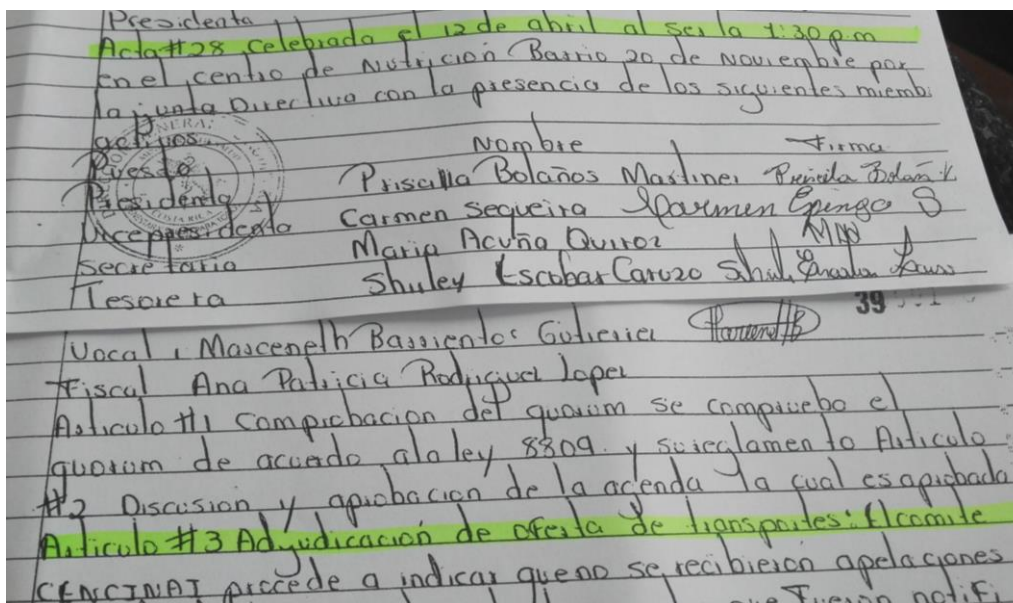 Presidenta
Acta #28 celebrada el 12 de abril al ser la 1:30 p.m
en el centro de Nutrición Barrio 20 de Noviembre por
la junta Directiva con la presencia de los siguientes miemb
activos
Puesto Nombre Firma
Presidenta Priscilla Bolaños Martinez
Vicepresidenta Carmen Sequeira Carmen
Secretaria Maria Acuña Quiroz
Tesorera Shirley Escobar Caruzo
39
Vocal 1 Masceneth Barrientos Gutierrez
Fiscal Ana Patricia Rodriguez Lopez
Articulo #1 Comprobacion del quorum se compruebo el
quorum de acuerdo ala ley 8809 y su reglamento Articulo
#2 Discusion y aprobacion de la agenda la cual es aprobada
Articulo #3 Adjudicación de oferta de transportes: El comite
CENCINAI procede a indicar que no se recibieron apelaciones
que Fueron notifi